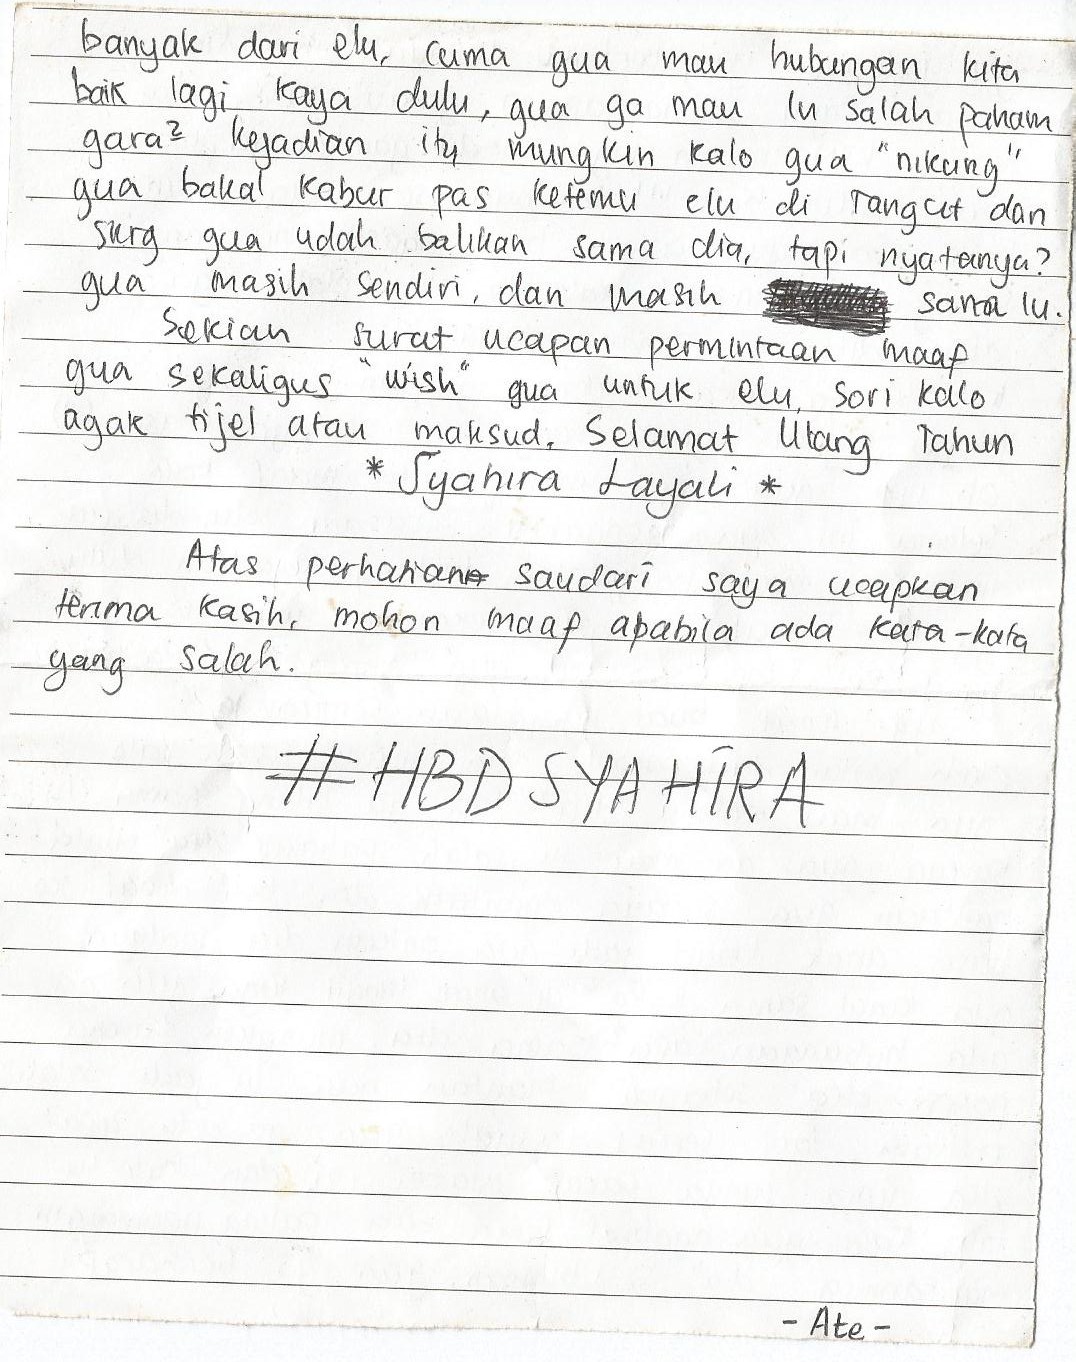 banyak dari elu, cuma gua mau hubungan kita
baik lagi kaya dulu, gua ga mau lu salah paham
gara² kejadian itu mungkin kalo gua "nikung"
gua bakal kabur pas ketemu elu di Tangcit dan
skrg gua udah balikan sama dia, tapi nyatanya?
gua masih sendiri, dan masih sama lu.
Sekian surat ucapan permintaan maaf
gua sekaligus "wish" gua untuk elu, Sori kalo
agak tijel atau maksud, Selamat Ulang Tahun
* Syahira Layali *
Atas perhatian saudari saya ucapkan
terima kasih, mohon maaf apabila ada kata-kata
yang salah.
#HBDSYAHIRA
- Ate -